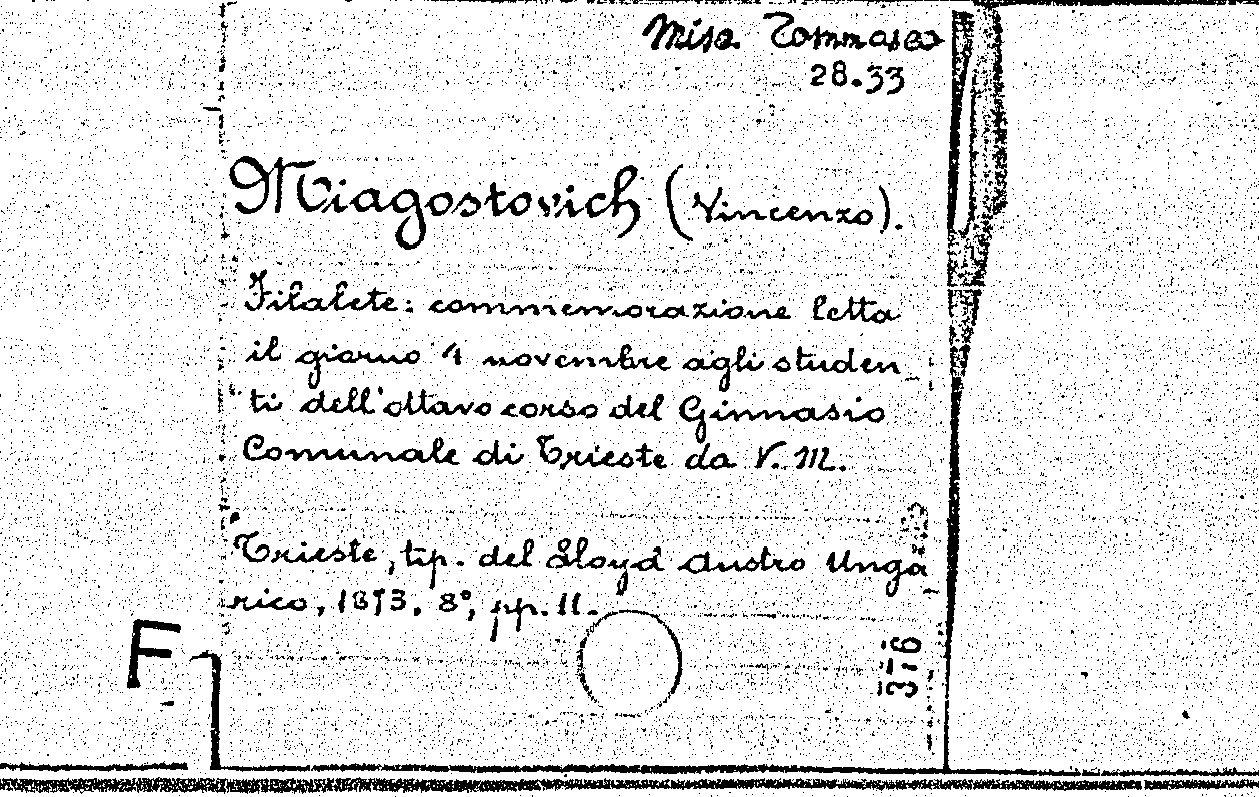 Misc. Tommaseo
28.33
Miagostovich (Vincenzo).
Filalete: commemorazione letta
il giorno 4 novembre agli studen_
ti dell'ottavo corso del Ginnasio
Comunale di Trieste da V. M.
Trieste, tip. del Lloyd Austro Unga
rico, 1873. 8°, pp. 11.
F
376